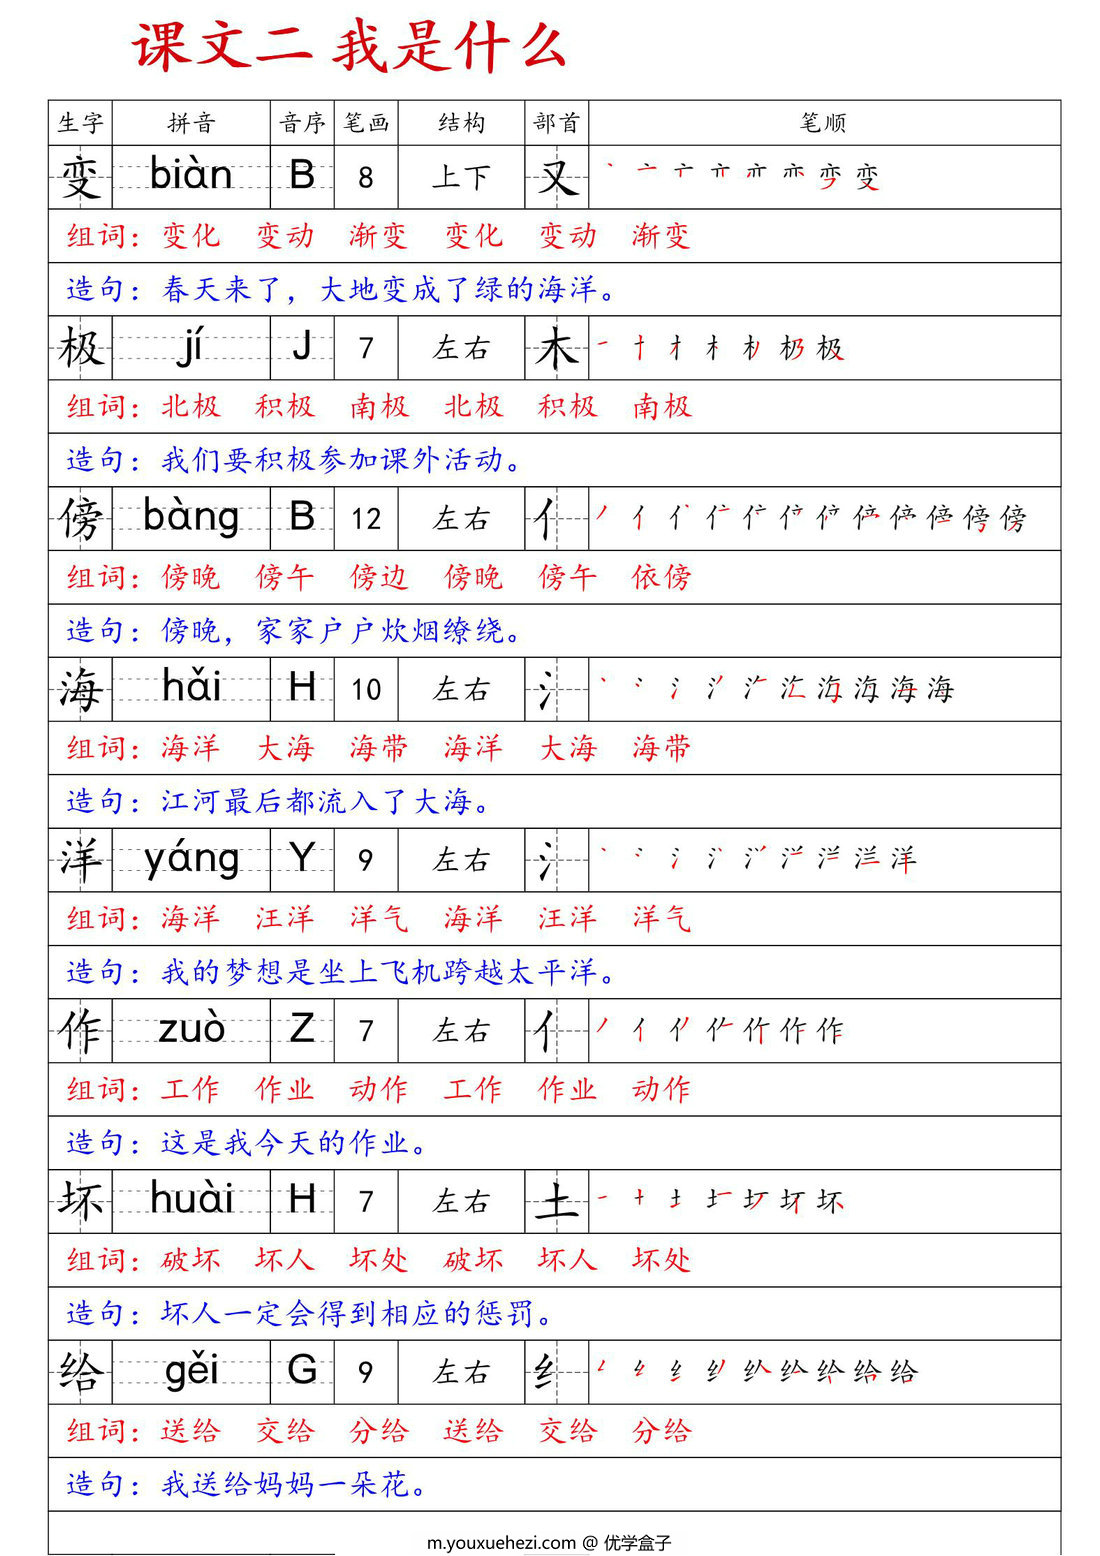 课文二 我是什么
生字 拼音 音序 笔画 结构 部首 笔顺
变 biàn B 8 上下 又 变
组词：变化 变动 渐变 变化 变动 渐变
造句：春天来了，大地变成了绿的海洋。
极 jí J 7 左右 木 极
组词：北极 积极 南极 北极 积极 南极
造句：我们要积极参加课外活动。
傍 bàng B 12 左右 亻 傍
组词：傍晚 傍午 傍边 傍晚 傍午 依傍
造句：傍晚，家家户户炊烟缭绕。
海 hǎi H 10 左右 氵 海
组词：海洋 大海 海带 海洋 大海 海带
造句：江河最后都流入了大海。
洋 yáng Y 9 左右 氵 洋
组词：海洋 汪洋 洋气 海洋 汪洋 洋气
造句：我的梦想是坐上飞机跨越太平洋。
作 zuò Z 7 左右 亻 作
组词：工作 作业 动作 工作 作业 动作
造句：这是我今天的作业。
坏 huài H 7 左右 土 坏
组词：破坏 坏人 坏处 破坏 坏人 坏处
造句：坏人一定会得到相应的惩罚。
给 gěi G 9 左右 纟 给
组词：送给 交给 分给 送给 交给 分给
造句：我送给妈妈一朵花。
m.youxuehezi.com @ 优学盒子